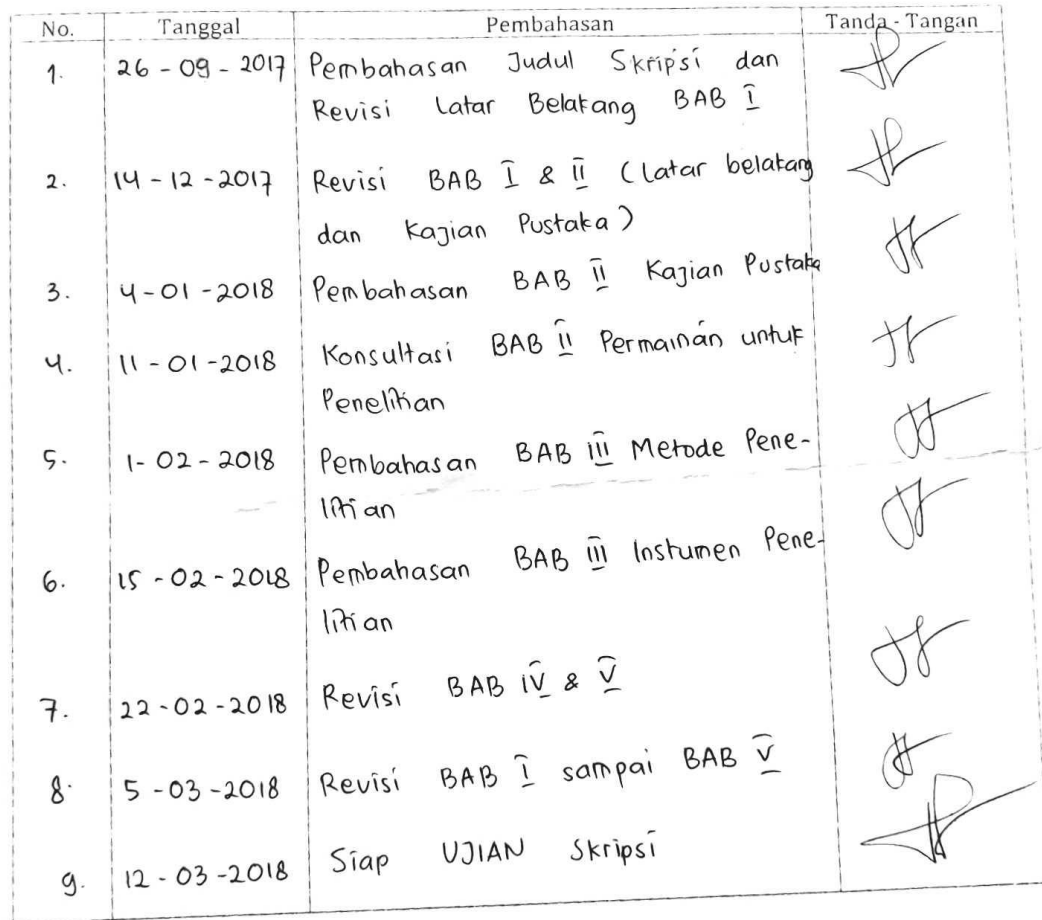 No. Tanggal Pembahasan Tanda - Tangan
1. 26 - 09 - 2017 Pembahasan Judul Skripsi dan
Revisi Latar Belakang BAB I
2. 14 - 12 - 2017 Revisi BAB I & II (Latar belakang
dan Kajian Pustaka)
3. 4 - 01 - 2018 Pembahasan BAB II Kajian Pustaka
4. 11 - 01 - 2018 Konsultasi BAB II Permainan untuk
Penelitian
5. 1 - 02 - 2018 Pembahasan BAB III Metode Pene-
litian
6. 15 - 02 - 2018 Pembahasan BAB III Instumen Pene-
litian
7. 22 - 02 - 2018 Revisi BAB IV & V
8. 5 - 03 - 2018 Revisi BAB I sampai BAB V
9. 12 - 03 - 2018 Siap UJIAN Skripsi